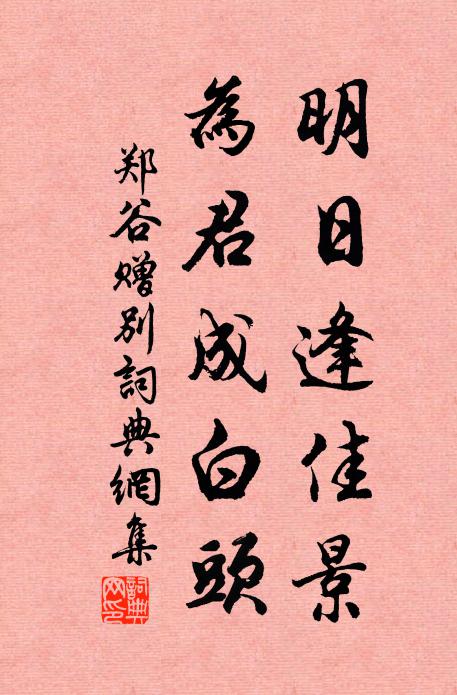 明日逢佳景
為君成白頭
郑谷赠别詞典網集
詞典
网印